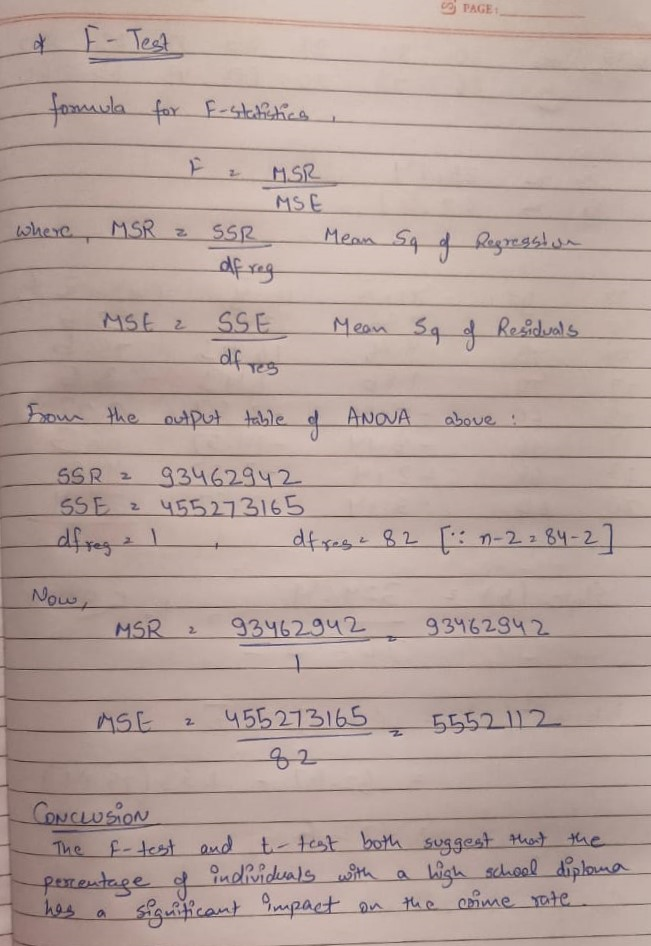 PAGE:
* F - Test
formula for F-statistics,
F = MSR / MSE
where, MSR = SSR / df reg Mean Sq of Regression
MSE = SSE / df res Mean Sq of Residuals
From the output table of ANOVA above :
SSR = 93462942
SSE = 455273165
df reg = 1 , df res = 82 [∵ n-2 = 84-2]
Now,
MSR = 93462942 / 1 = 93462942
MSE = 455273165 / 82 = 5552112
CONCLUSION
The F-test and t-test both suggest that the
percentage of individuals with a high school diploma
has a significant impact on the crime rate.